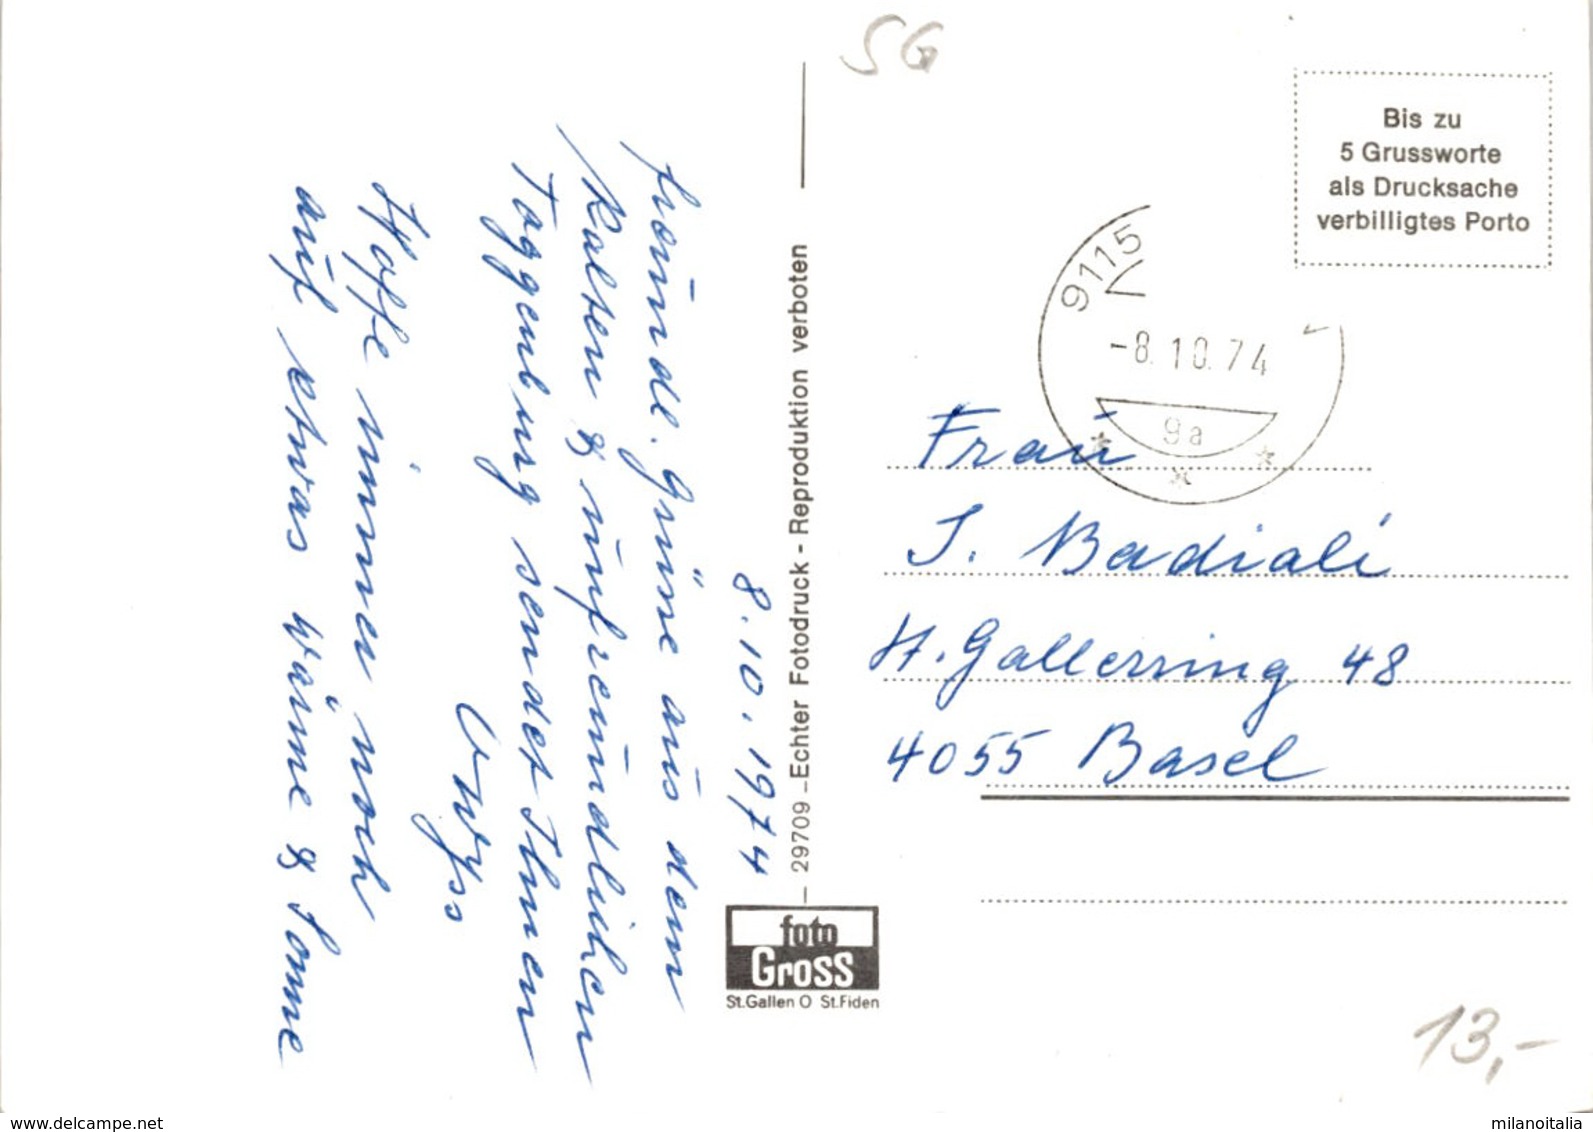 8.10.1974
freundl. Grüsse aus dem
kalten & unfreundlichen
Toggenburg sendet Ihnen
Wyss
Hoffe immer noch
auf etwas Wärme & Sonne
SG
Bis zu
5 Grussworte
als Drucksache
verbilligtes Porto
9115
-8.10.74
9a
Frau
J. Badiali
H. Gallerring 48
4055 Basel
— 29709 – Echter Fotodruck - Reproduktion verboten
foto
Gross
St.Gallen O St.Fiden
13,-
www.delcampe.net
milanoitalia